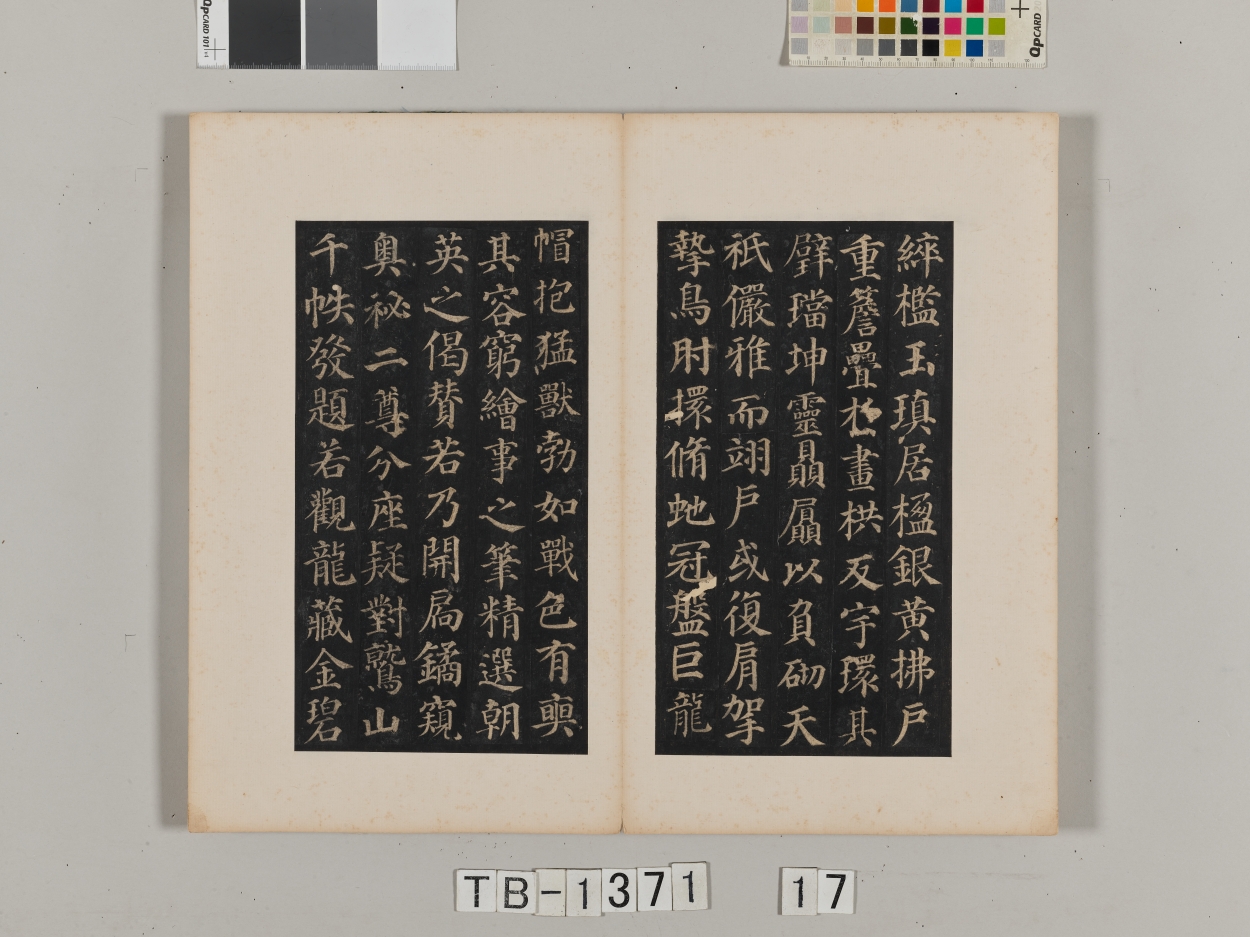 綷檻玉瑱居楹銀黃拂戶
重簷疊於畫栱反宇環其
璧璫坤靈贔屭以負砌天
祇儼雅而翊戶或復肩挐
摯鳥肘擐脩虵冠盤巨龍
帽抱猛獸勃如戰色有奭
其容窮繪事之筆精選朝
英之偈贊若乃開扃鐍窺
奧祕二尊分座疑對鷲山
千帙發題若觀龍藏金碧
TB-1371 17
QPCARD 101
QPCARD